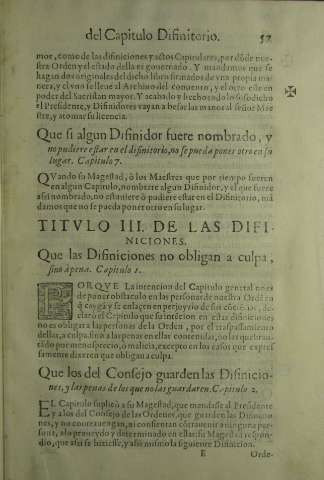 del Capitulo Difinitorio. 57
mos, como de las difiniciones y actos Capitulares, por dōde nues
tra Orden y el estado della es gouernado. Y mandamos que se
hagan dos originales del dicho libro firmados de vna propia ma
nera, y el vno se lleue al Archiuo del conuento, y el otro este en
poder del Sacristan mayor. Y acabado y hecho todo lo susodicho
el Presidente, y Difinidores vayan a besar las manos al señor Maes
tre, y a tomar su licencia.
Que si algun Difinidor fuere nombrado, y
no pudiere estar en el difinitorio, no se pueda poner otro en su
lugar. Capitulo 7.
QVando su Magestad, ò los Maestres que por tiempo fueren
en algun Capitulo, nombrare algun Difinidor, y el que fuere
assi nombrado, no estuuiere ò pudiere estar en el Difinitorio, mā
damos que no se pueda poner otro en su lugar.
TITVLO III. DE LAS DIFI-
NICIONES.
Que las Difiniciones no obligan a culpa,
sino a pena. Capitulo 1.
PORQVE La intencion del Capitulo general no es
de poner obstaculo en las personas de nuestra Ordē en
q̄ cayga y se enlacen en perjuyzio de sus cōciēcias, de-
claró el Capitulo que su intēcion en estas difiniciones
no es obligar a las personas de la Orden, por el traspassamiento
dellas, a culpa, sino a las penas en ellas contenidas, no las quebrā
tādo por menosprecio, ò malicia, excepto en los casos que expres
samente dixeren que obligan a culpa.
Que los del Consejo guarden las Difinicio-
nes, y las penas de los que no las guardaren. Capitulo 2.
EL Capitulo suplicò a su Magestad, que mandasse al Presidente
y a los del Consejo de las Ordenes, que guarden las Difinicio
nes, y no contrauengan, ni consientan cōtrauenir a ninguna per
sona, a lo proueydo y determinado en ellas: su Magestad respon-
dio, que assi se hiziesse, y assi mismo la siguiente Difinicion.
E Orde-